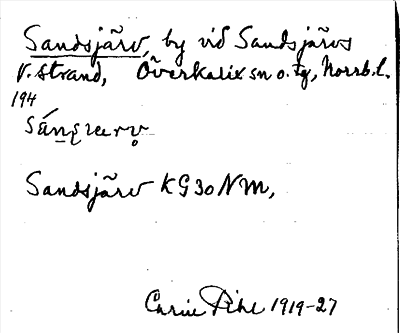 Sandsjärv, by vid Sandsjärvs
v. strand, Överkalix sn o. tg, Norrb. l.
194
Sandsjärv KG 30 NM,
1919-27